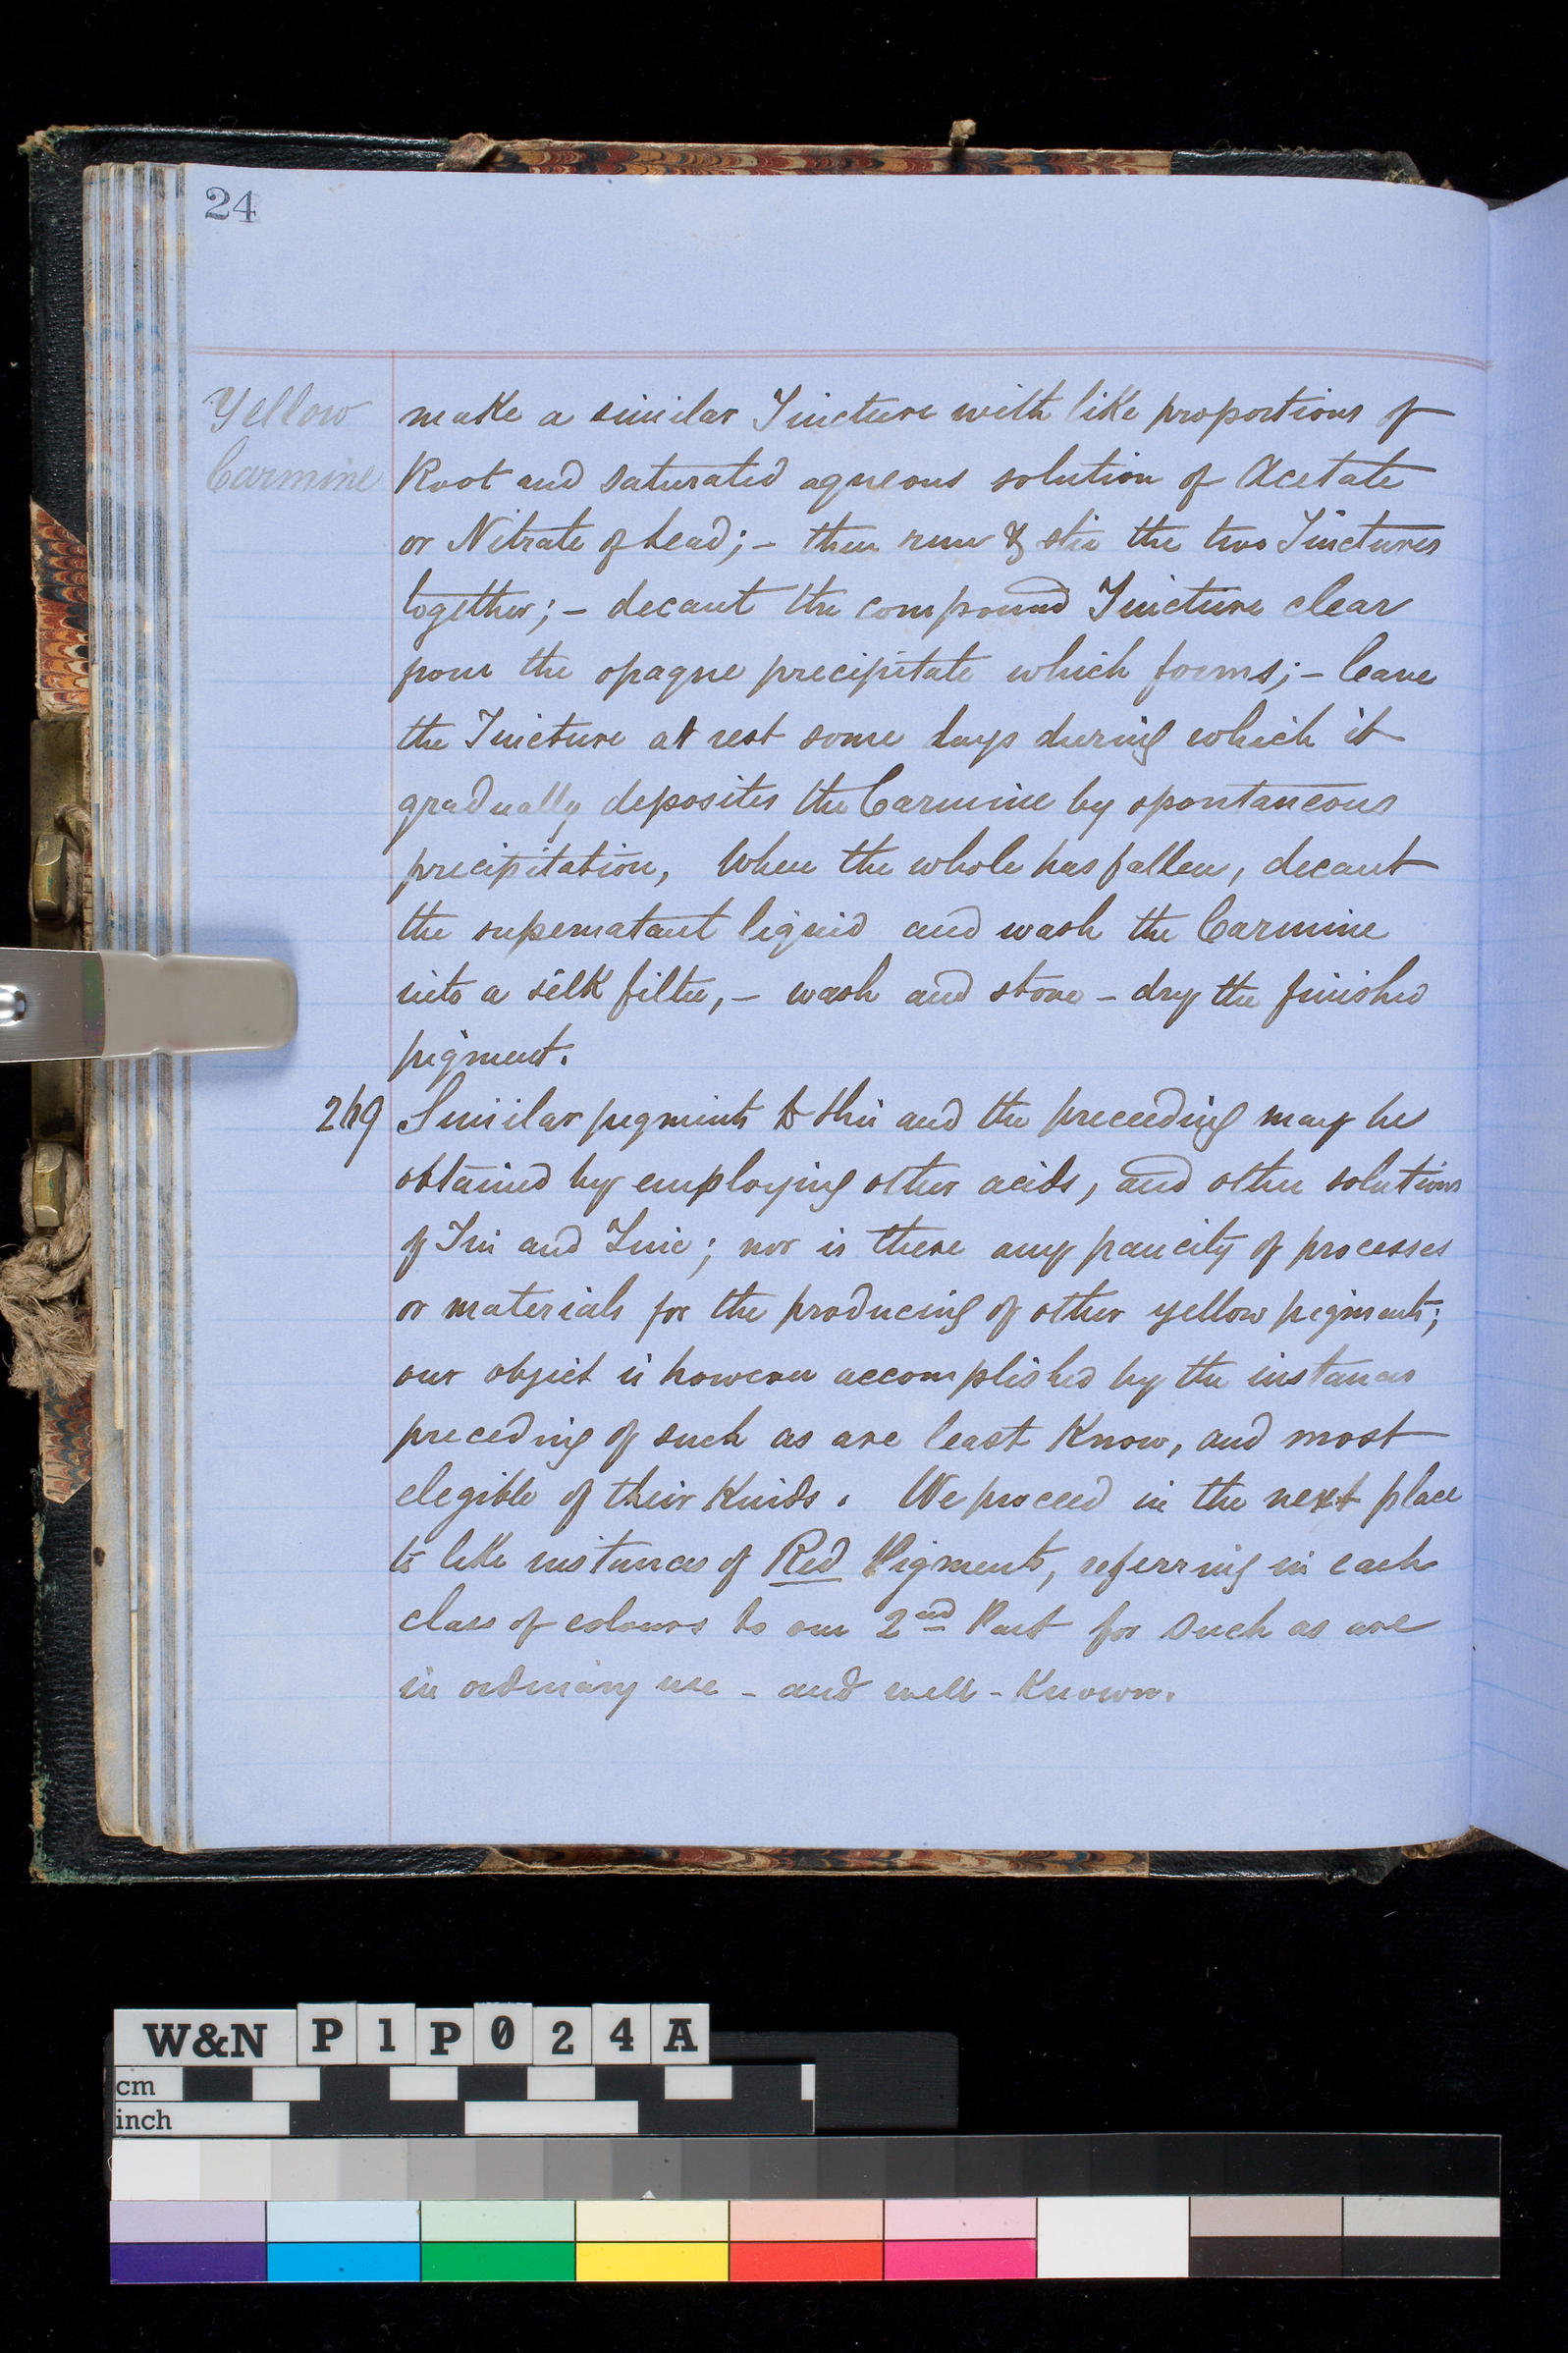 24
Yellow
Carmine
make a similar Tincture with like proportions of
Root and saturated aqueous solution of Acetate
or Nitrate of Lead; - then run & stir the two Tinctures
together; - decant the compound Tincture clear
from the opaque precipitate which forms; - leave
the Tincture at rest some days during which it
gradually deposites the Carmine by spontaneous
precipitation, When the whole has fallen, decant
the supernatant liquid and wash the Carmine
into a silk filter, - wash and stove - dry the finished
pigment.
269 Similar pigments to this and the preceeding may be
obtained by employing other acids, and other solutions
of Tin and Zinc; nor is there any paucity of processes
or materials for the producing of other yellow pigments;
our object is however accomplished by the instances
preceding of such as are least Know, and most
elegible of their Kinds. We proceed in the next place
to like instances of Red Pigments, referring in each
class of colours to our 2nd Part for such as are
in ordinary use - and well - Known.
W&N P1P024A
cm
inch